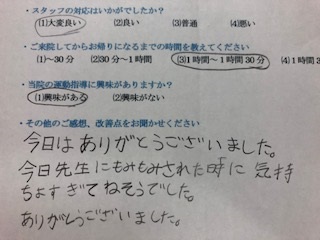 ・スタッフの対応はいかがでしたか？
(1)大変良い (2)良い (3)普通 (4)悪い
・ご来院してからお帰りになるまでの時間を教えてください
(1)～30分 (2)30分～1時間 (3)1時間～1時間30分 (4)1時間3
・当院の運動指導に興味がありますか？
(1)興味がある (2)興味がない
・その他のご感想、改善点をお聞かせください
今日はありがとうございました。
今日先生にもみもみされた時に気持
ちよすぎてねそうでした。
ありがとうございました。